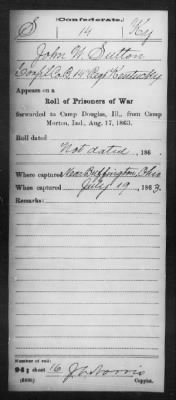 (Confederate.)
S 14 Ky
John W. Sutton
Corpl, Co. B, 14 Reg't Kentucky
Appears on a
Roll of Prisoners of War
forwarded to Camp Douglas, Ill., from Camp
Morton, Ind., Aug. 17, 1863.
Roll dated
Not dated, 186 .
Where captured Near Buffington, Ohio
When captured July 19, 1863.
Remarks:
Number of roll:
94; sheet 16 J C Norris
Copyist.